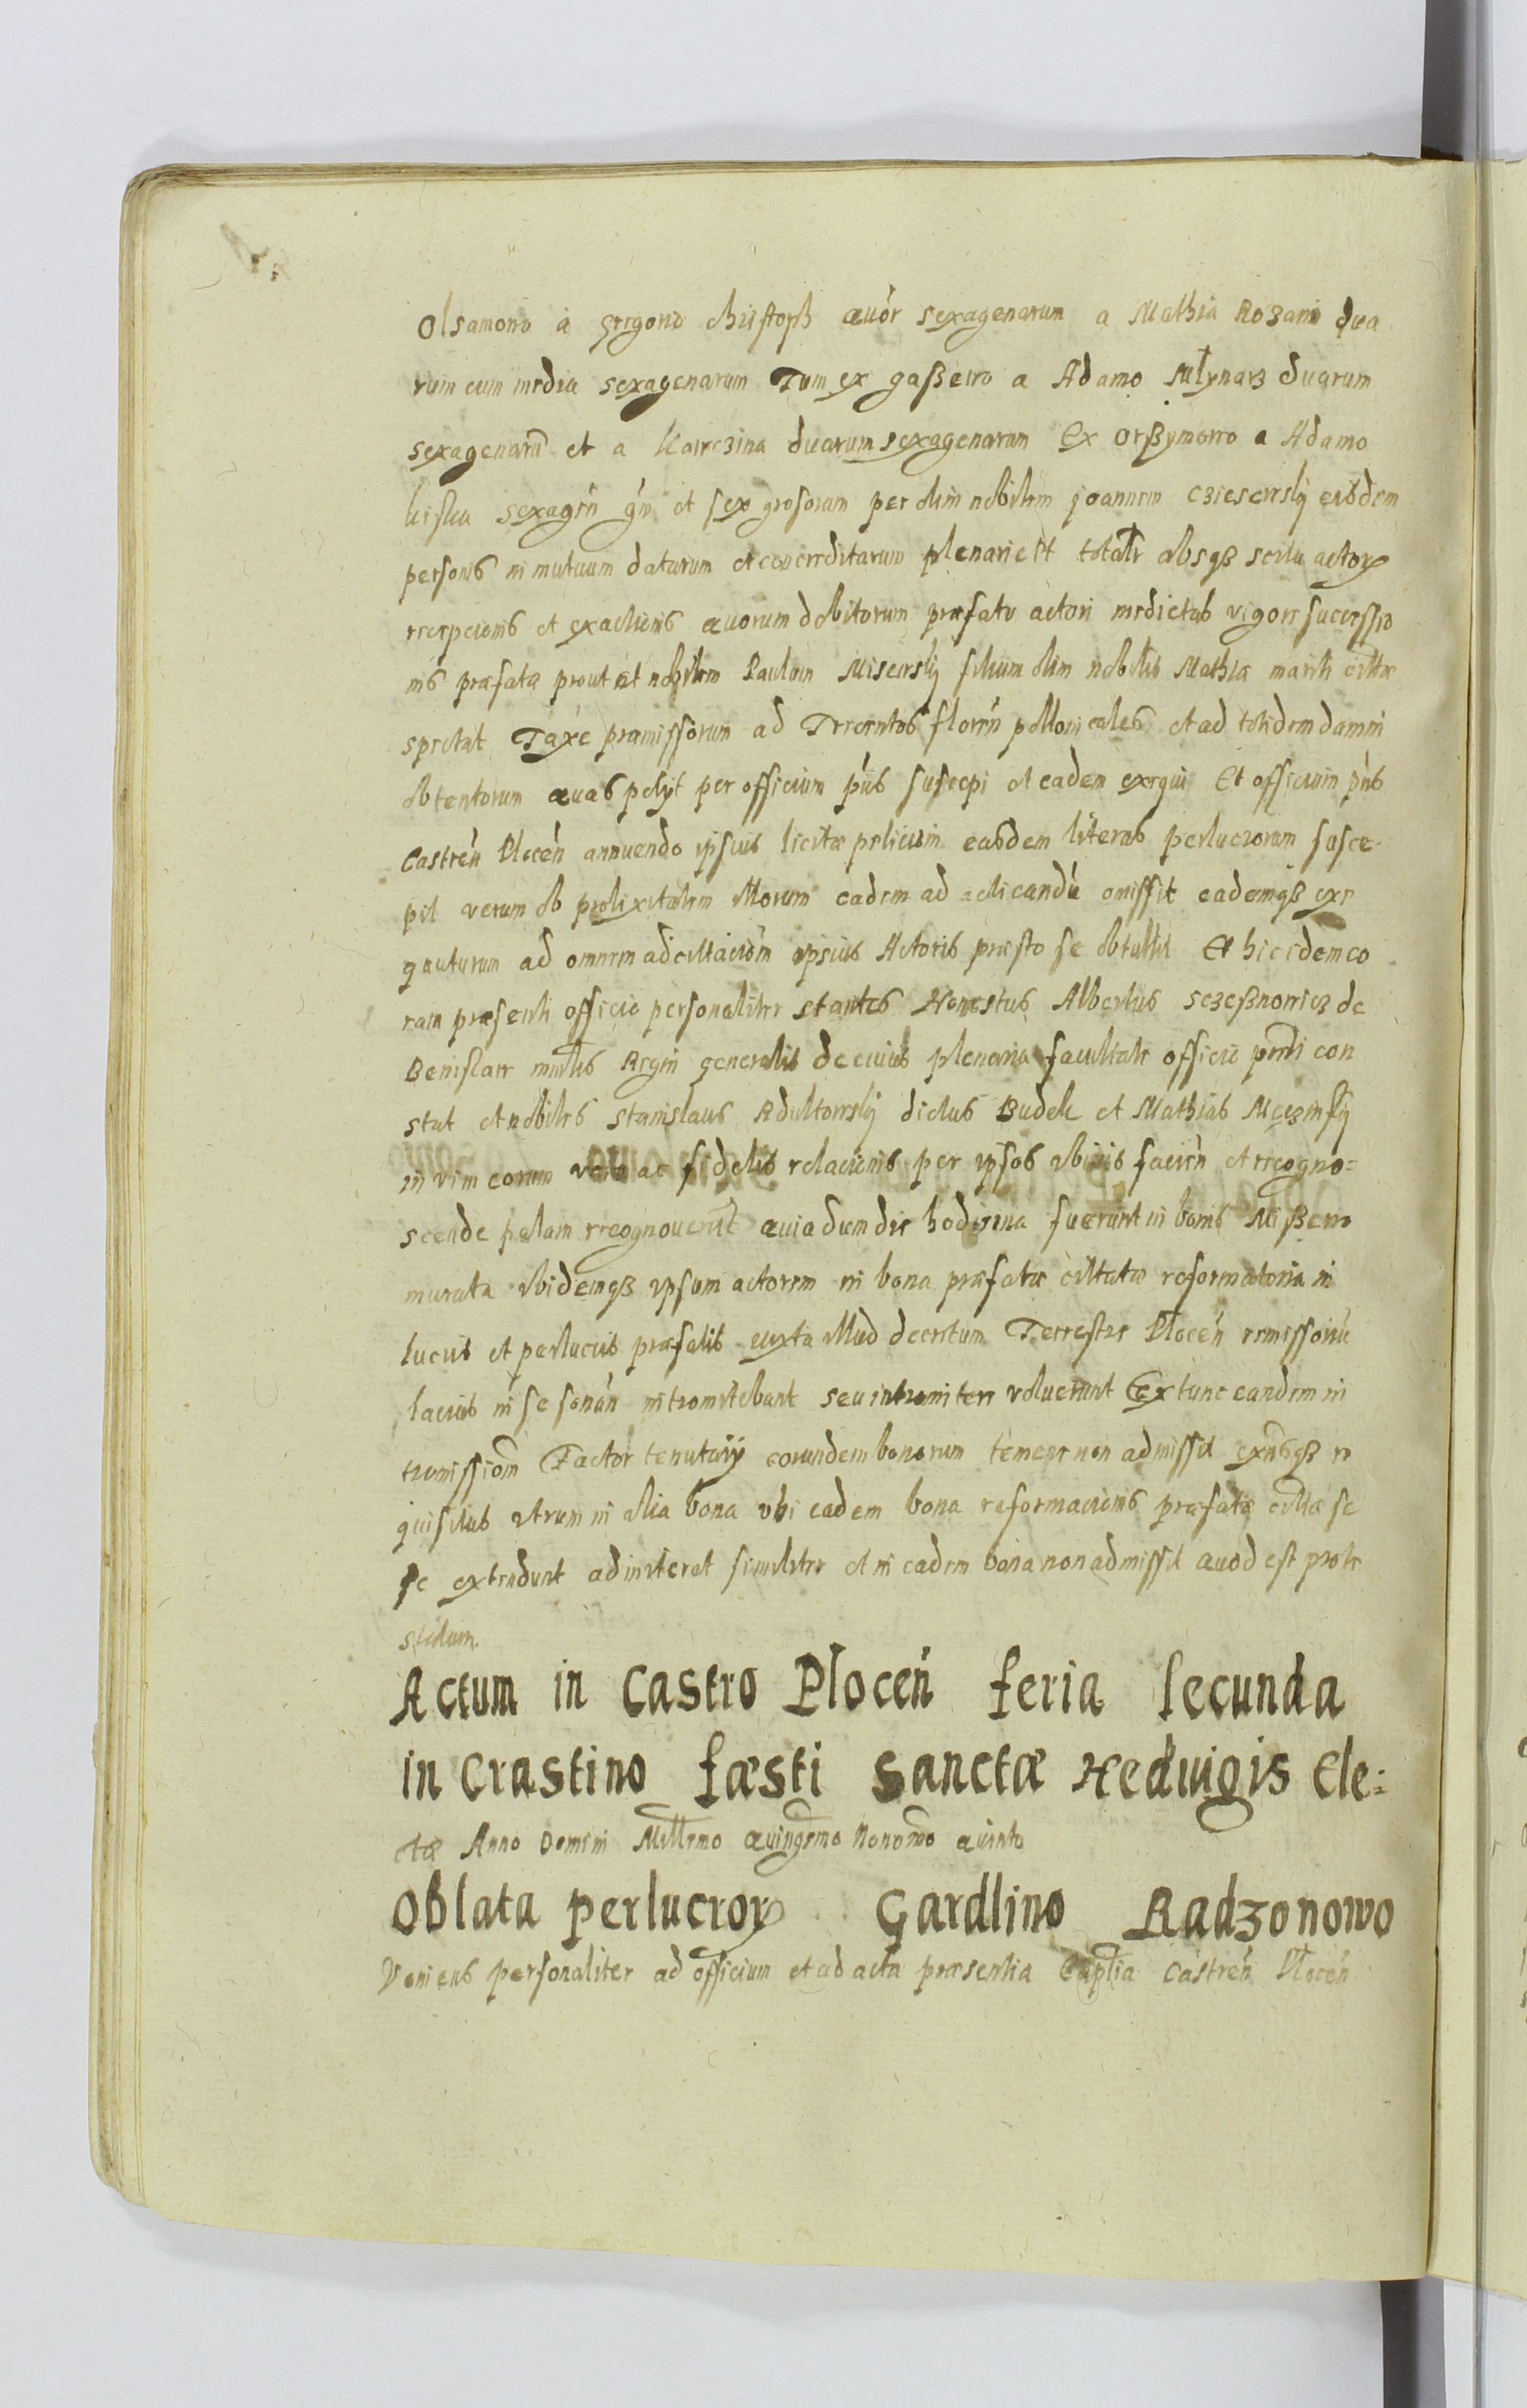 Olsamowo a Gregorio Christoph quor sexagenarum a Mathia Rozani dua
rum cum media sexagenarum Tum ex gaßewo a Adamo Młynarz duarum
sexagenarũ et a duarum sexagenarum Ex Orßymowo a Adamo
sexagen et sex grosorum per olim nobilem Joannem eisdem
personis in mutuum datarum et concreditarum plenarie et totalr absqß scitu actorꝝ
recepcionis et exactionis quorum debitorum præfato actori medietas vigore successio
nis præfatæ prout et nobilem Paulum Misewsky filium olim nobilis Mathiæ mariti citatæ
spectat Taxe præmissorum ad Trecentos floren pollonicales et ad totidem damni
obtentorum quas petyt per officium pns suscepi et eadem exequi Et officium pns
Castren Plocen annuendo ipsius licitæ peticioni easdem literas perlucrorum susce
pit verum ob prolixitatem illorum eadem ad acticandũ omissit eademqß exe
quuturum ad omnem adcittacionem ipsius Actoris præsto se obtullit Et hic idem co
ram præsenti officio personaliter stantes Honestus Albertus de
mintis Regni generalis de cuius plenaria facultate officio pnti con
stat et nobiles Stanislaus dictus Budek et Mathias
in vim eorum veræ ac fidelis relacionis per ipsos obinis facien et recogno=
scende palam recognoverũt quia dum die hodierna fuerunt in bonis Mißewo
murata ibidemqß ipsum actorem in bona præfatæ cittatæ reformatoria in
lucris et perlucris præfatis iuxta illud decretum Terrestre Plocen remissoriũ
lacius in se sonan intromitebant seu intromitere voluerunt Extunc eandem in
tromissionem Factor tenutarÿ eorundem bonorum temere non admissit exnsqß re
quisitus utrum in alia bona ubi eadem bona reformacionis præfatæ cittæ se
se extendunt admiteret similiter et in eadem bona non admissit quod est prote
statum.
Actum in Castro Plocen feria secunda
in Crastino fæsti Sanctæ Hedwigis Ele=
ctæ Anno Domini Millemo quingemo Nonomo quinto
Oblata perlucrorꝝ Gardlino Radzonowo
Veniens personaliter ad officium et ad acta præsentia Captia Castren Plocen